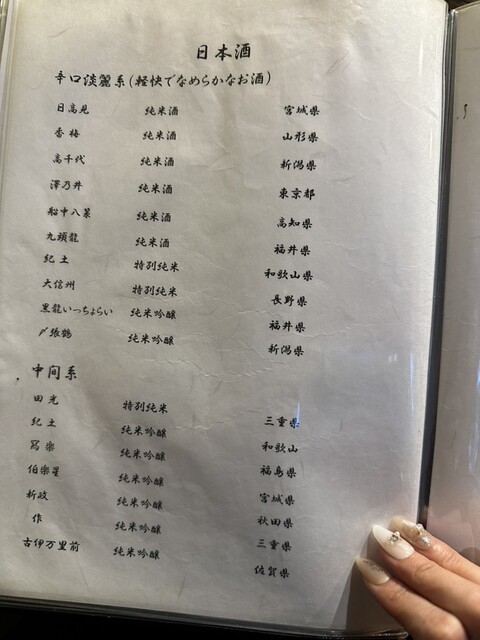 日本酒
辛口淡麗系(軽快でなめらかなお酒)
日高見 純米酒 宮城県
香梅 純米酒 山形県
高千代 純米酒 新潟県
澤乃井 純米酒 東京都
船中八策 純米酒 高知県
九頭龍 純米酒 福井県
紀土 特別純米 和歌山県
大信州 特別純米 長野県
黒龍いっちょらい 純米吟醸 福井県
〆張鶴 純米吟醸 新潟県
中間系
田光 特別純米 三重県
紀土 純米吟醸 和歌山
冩楽 純米吟醸 福島県
伯楽星 純米吟醸 宮城県
新政 純米吟醸 秋田県
作 純米吟醸 三重県
古伊万里前 純米吟醸 佐賀県